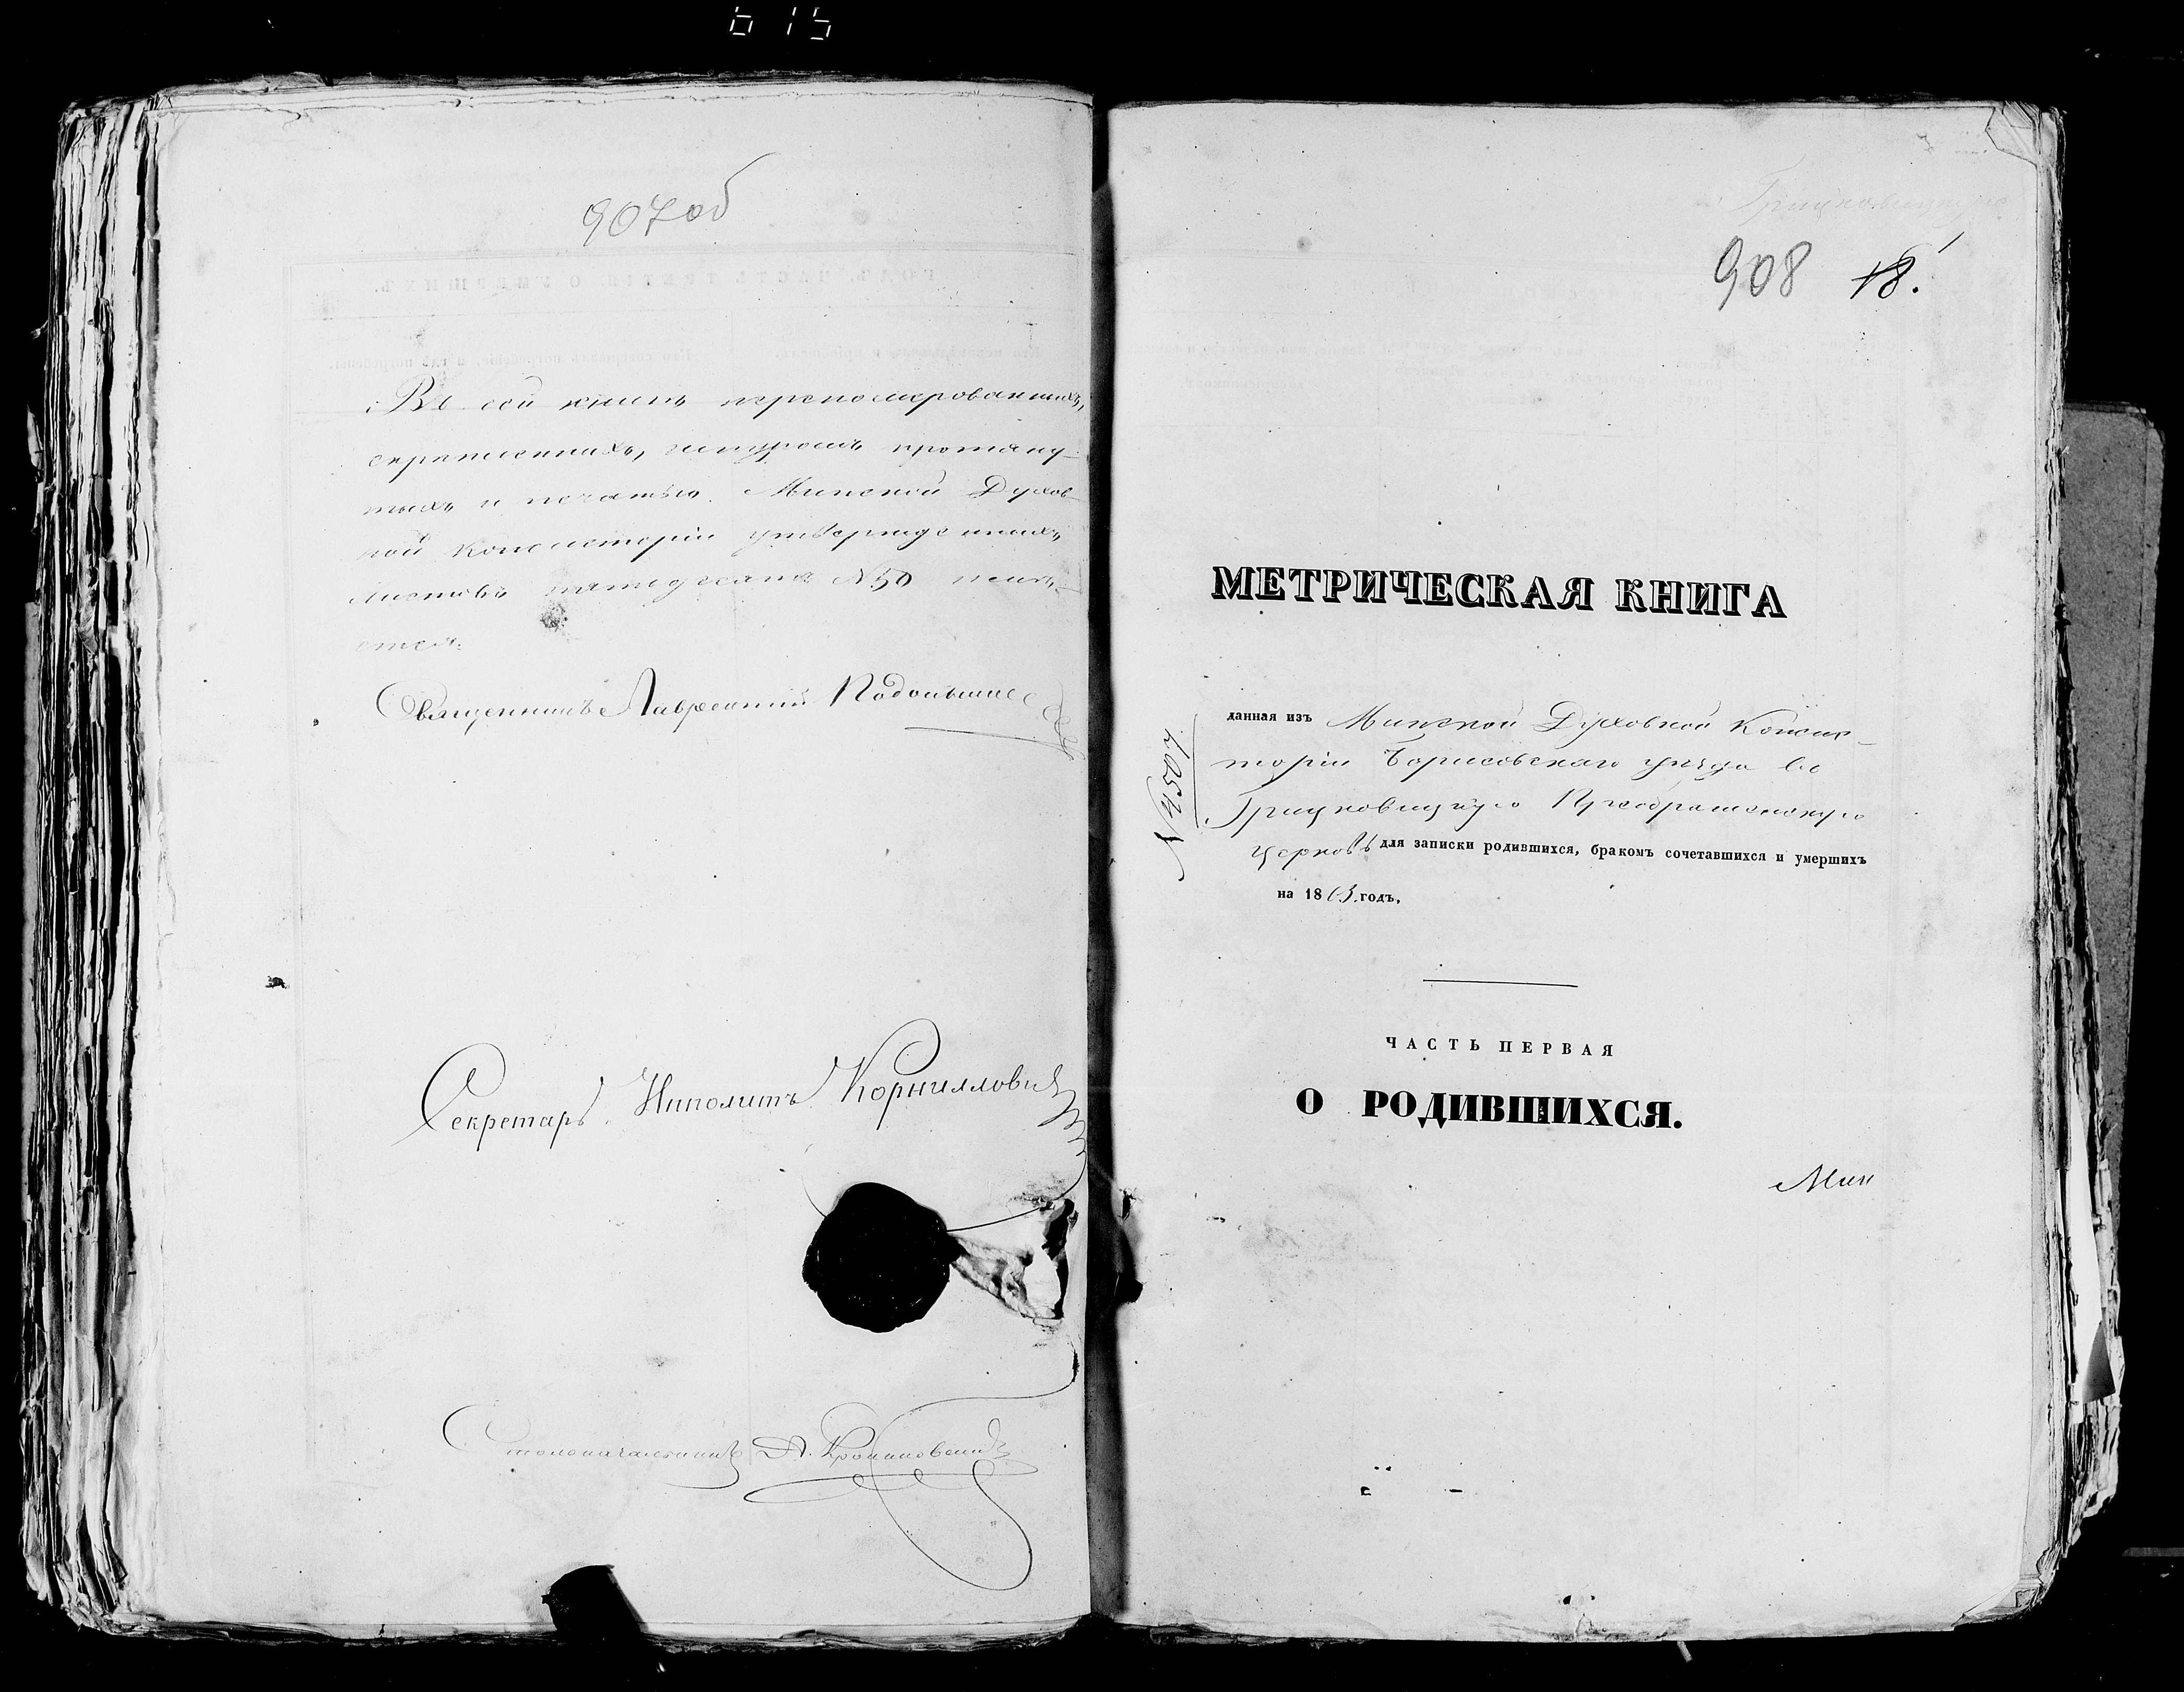 615
907об
Въ сей книгѣ перенумерованныхъ,
скрѣпленныхъ, шнуромъ протяну-
тыхъ и печатью Минской Духов-
ной Консисторіи утвержденныхъ
листовъ пятьдесятъ №50 имѣ-
ется.
Священникъ Лаврентій
Секретарь Ипполитъ Корниловичъ
Столоначальникъ А.
Грицковицкую
908 18.
МЕТРИЧЕСКАЯ КНИГА
№4507
данная изъ Минской Духовной Консис-
торіи Борисовскаго уѣзда въ
Грицковицкую Преображенскую
церковь для записки родившихся, бракомъ сочетавшихся и умершихъ
на 1863 годъ,
ЧАСТЬ ПЕРВАЯ
О РОДИВШИХСЯ.
Мин